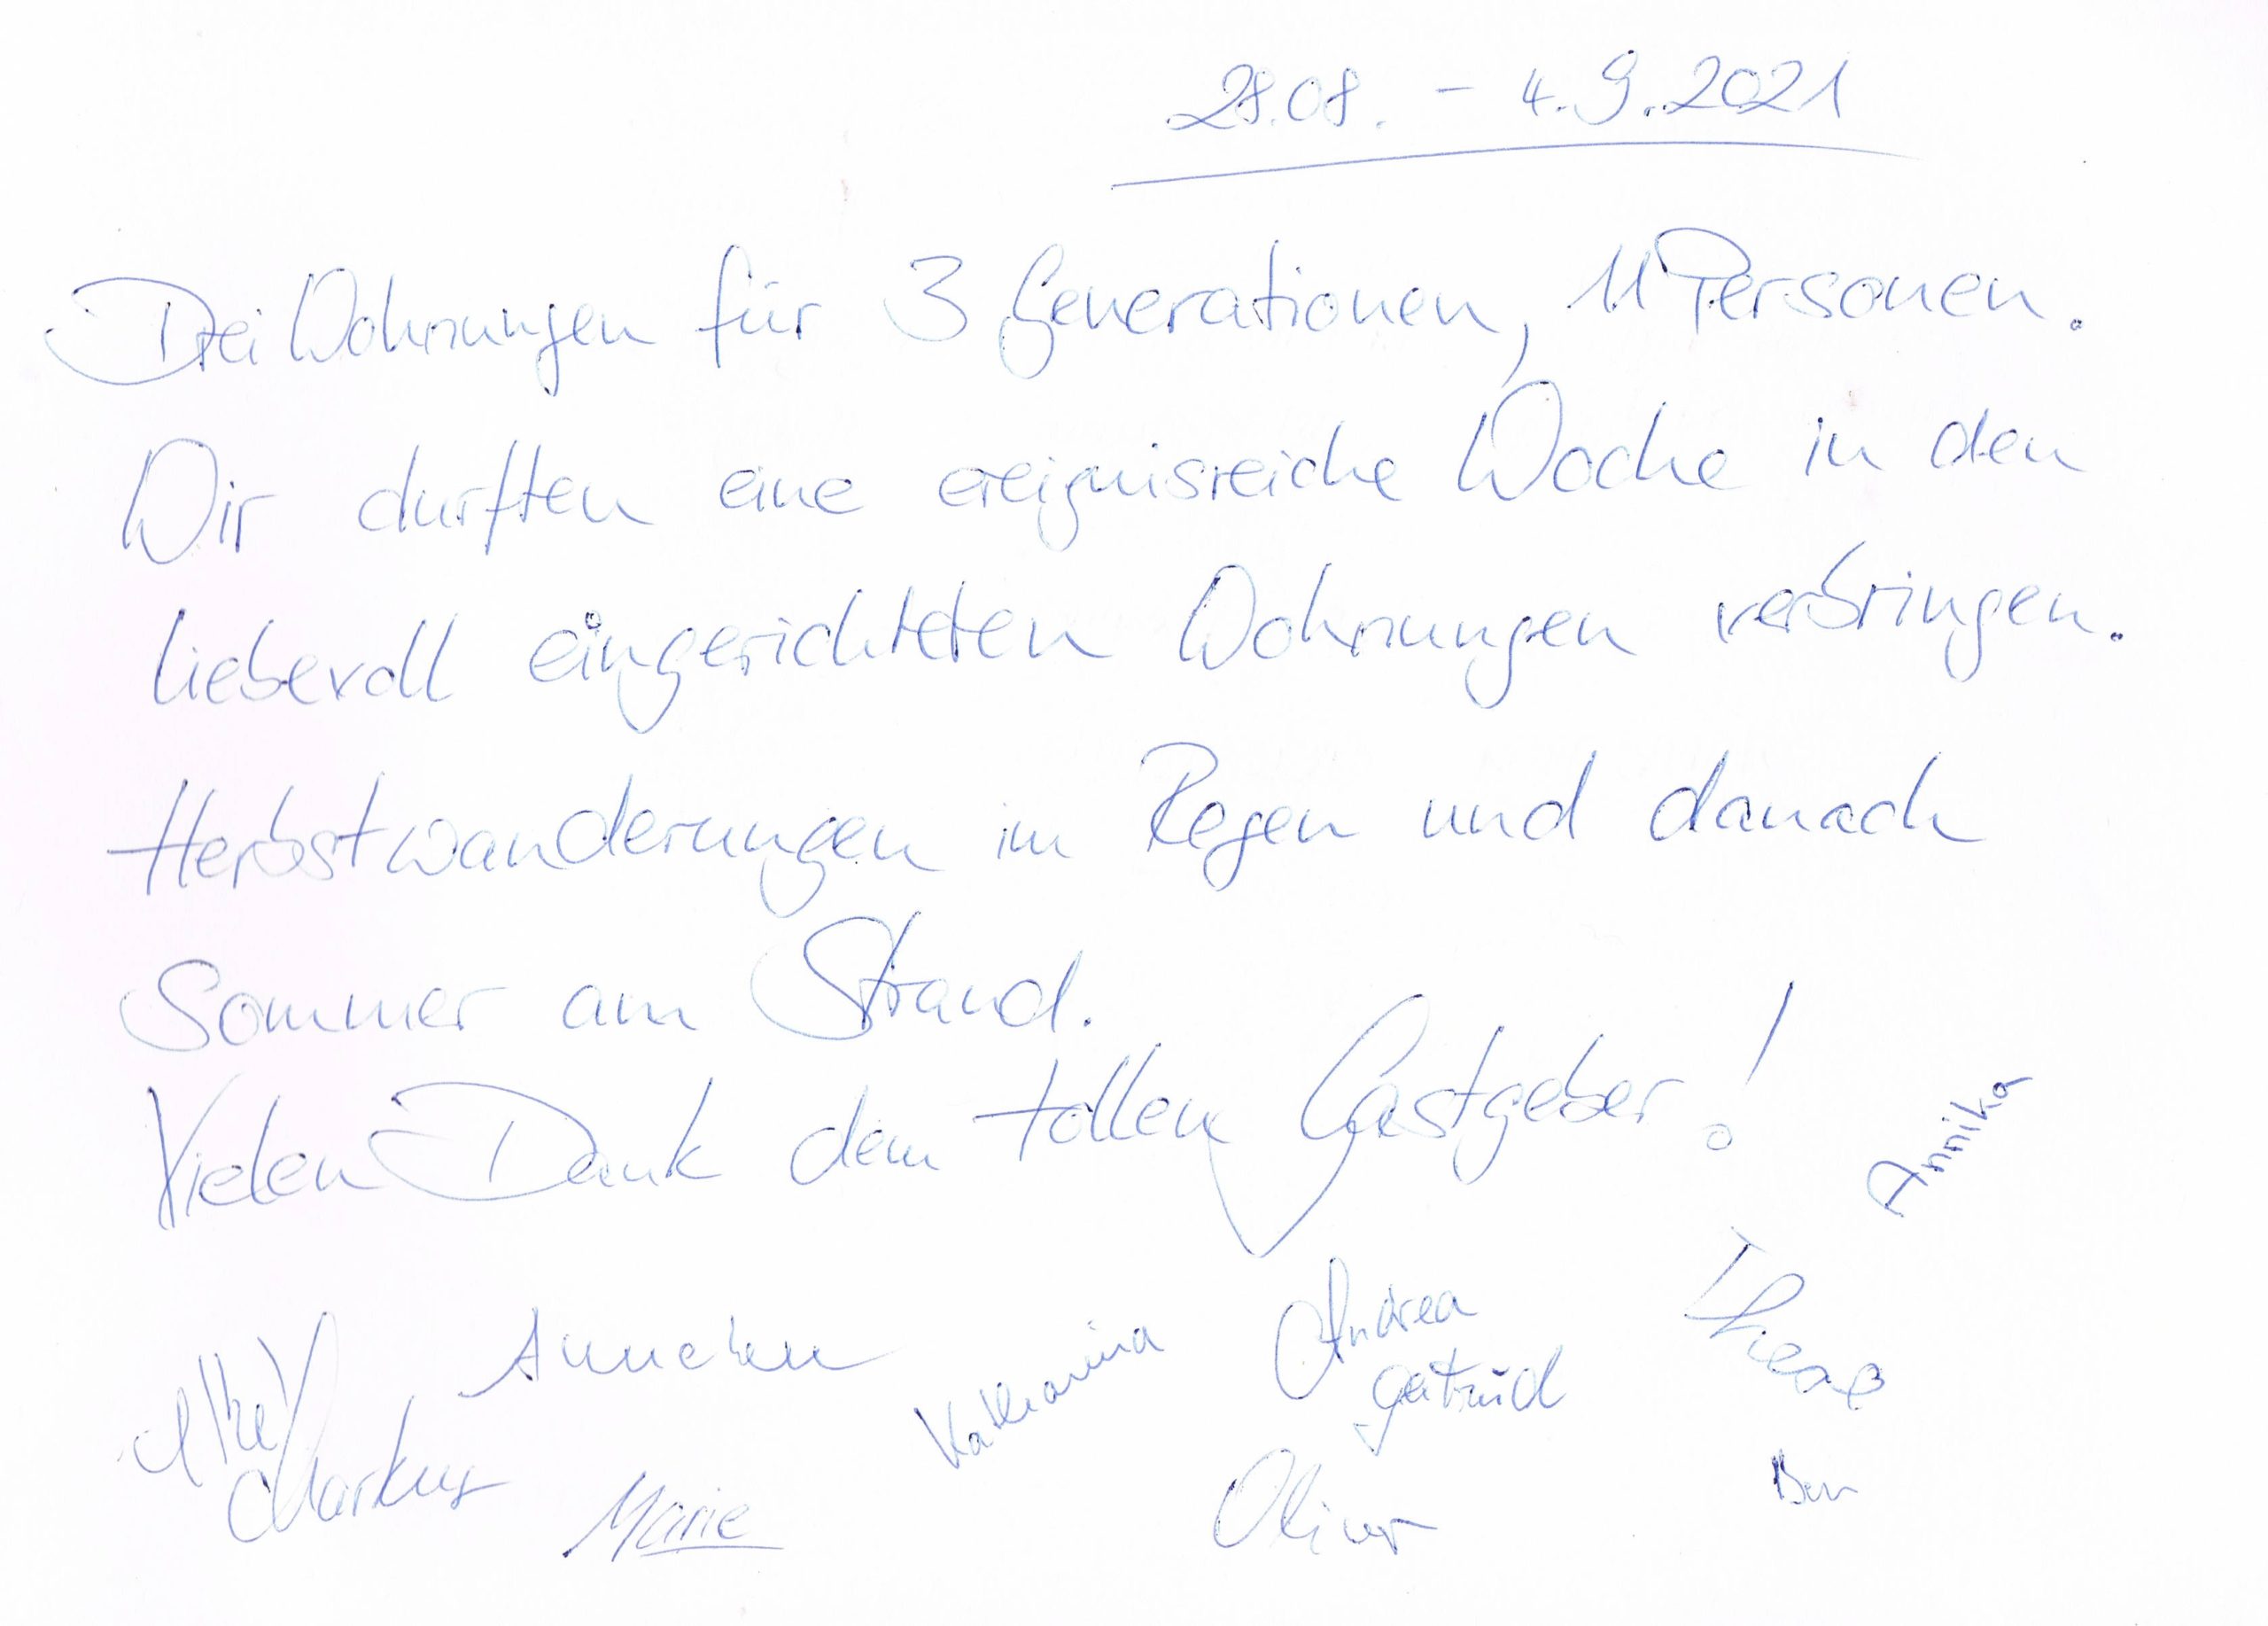 28.08. - 4.9.2021
Drei Wohnungen für 3 Generationen, 11 Personen.
Wir durften eine ereignisreiche Woche in den
liebevoll eingerichteten Wohnungen verbringen.
Herbstwanderungen im Regen und danach
Sommer am Strand.
Vielen Dank dem tollen Gastgeber!
Annika
Andrea
Katharina
Gertrud
Markus
Marie
Oliver
Ben